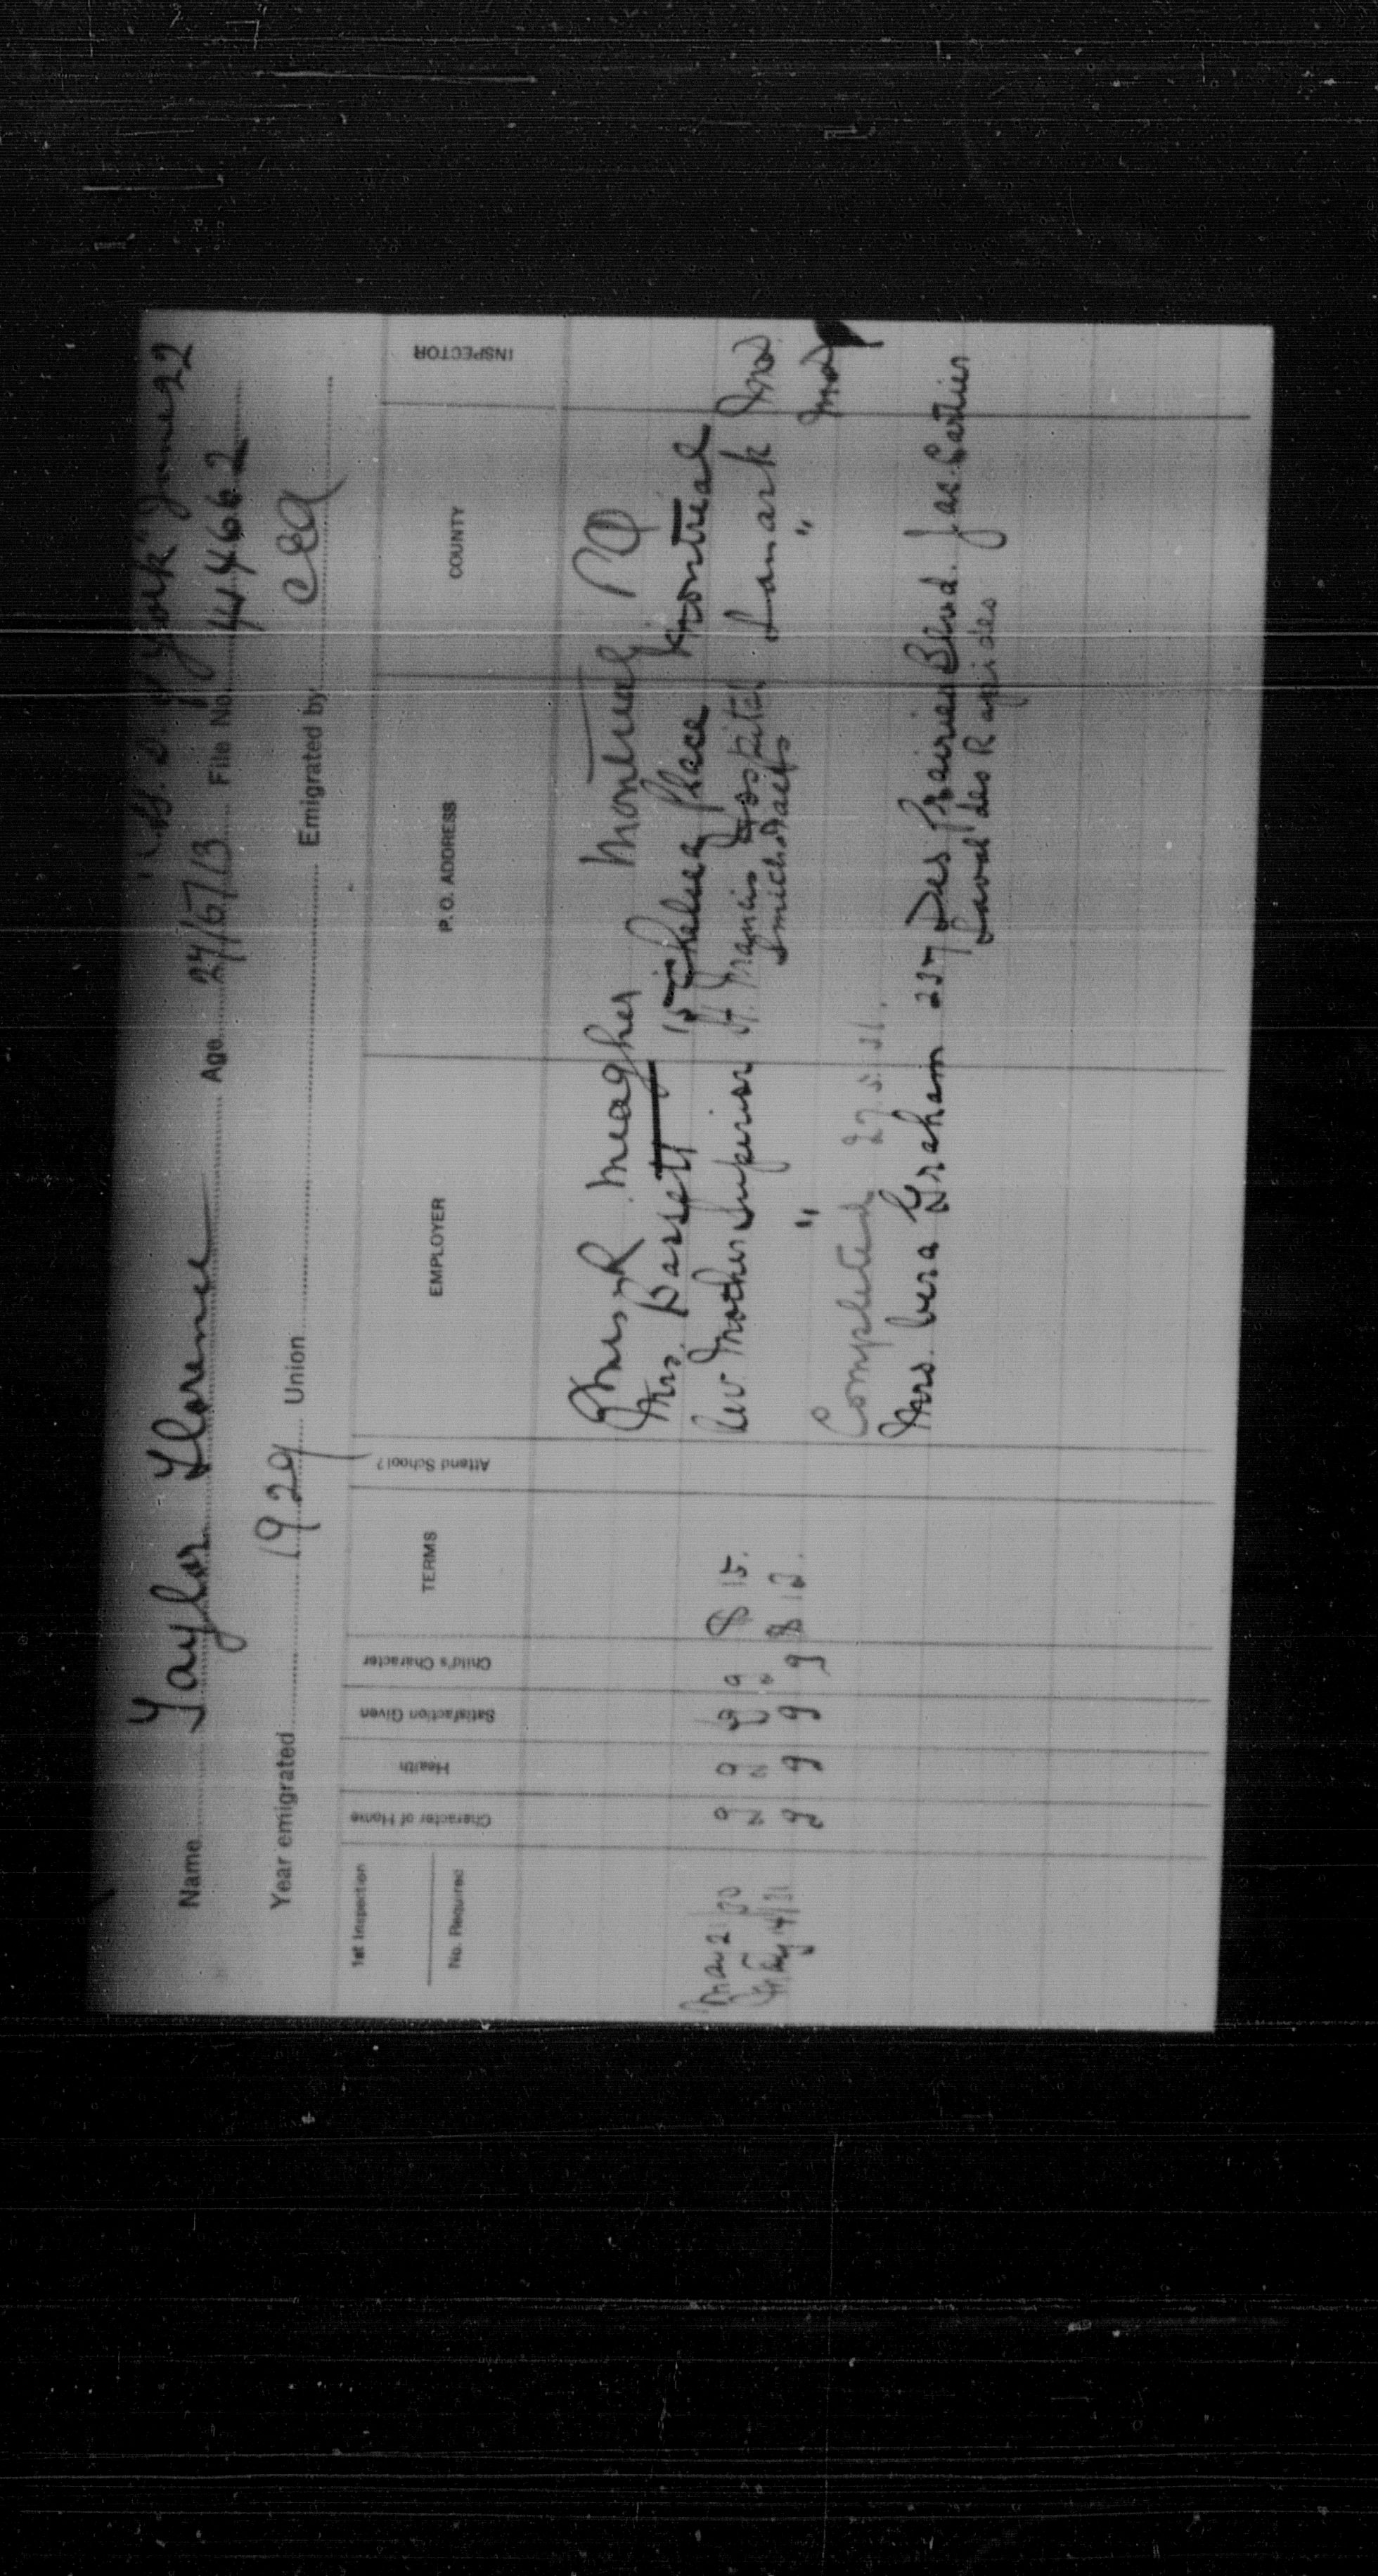 S.S. D. of York" June 22
Name Taylor Florence Age 27/5/13 File No. 44662
Year emigrated 1929 Union Emigrated by CEA
1st Inspection
No. Required
Character of Home
Health
Satisfaction Given
Child's Character
TERMS
Attend School?
EMPLOYER
P. O. ADDRESS
COUNTY
INSPECTOR
Meagher Montreal PQ
Mrs. Bassett 15 Chelsea Place Montreal
Mar 21/30 g g g g $15. Rev. Mother Superior St. Francis Hospital Lanark
Smiths Falls
May 14/31 g g g g $12. " "
Completed 27.5.31.
Mrs. Vera Graham 237 Des Prairies Blvd. Jac. Cartier
Laval des Rapides